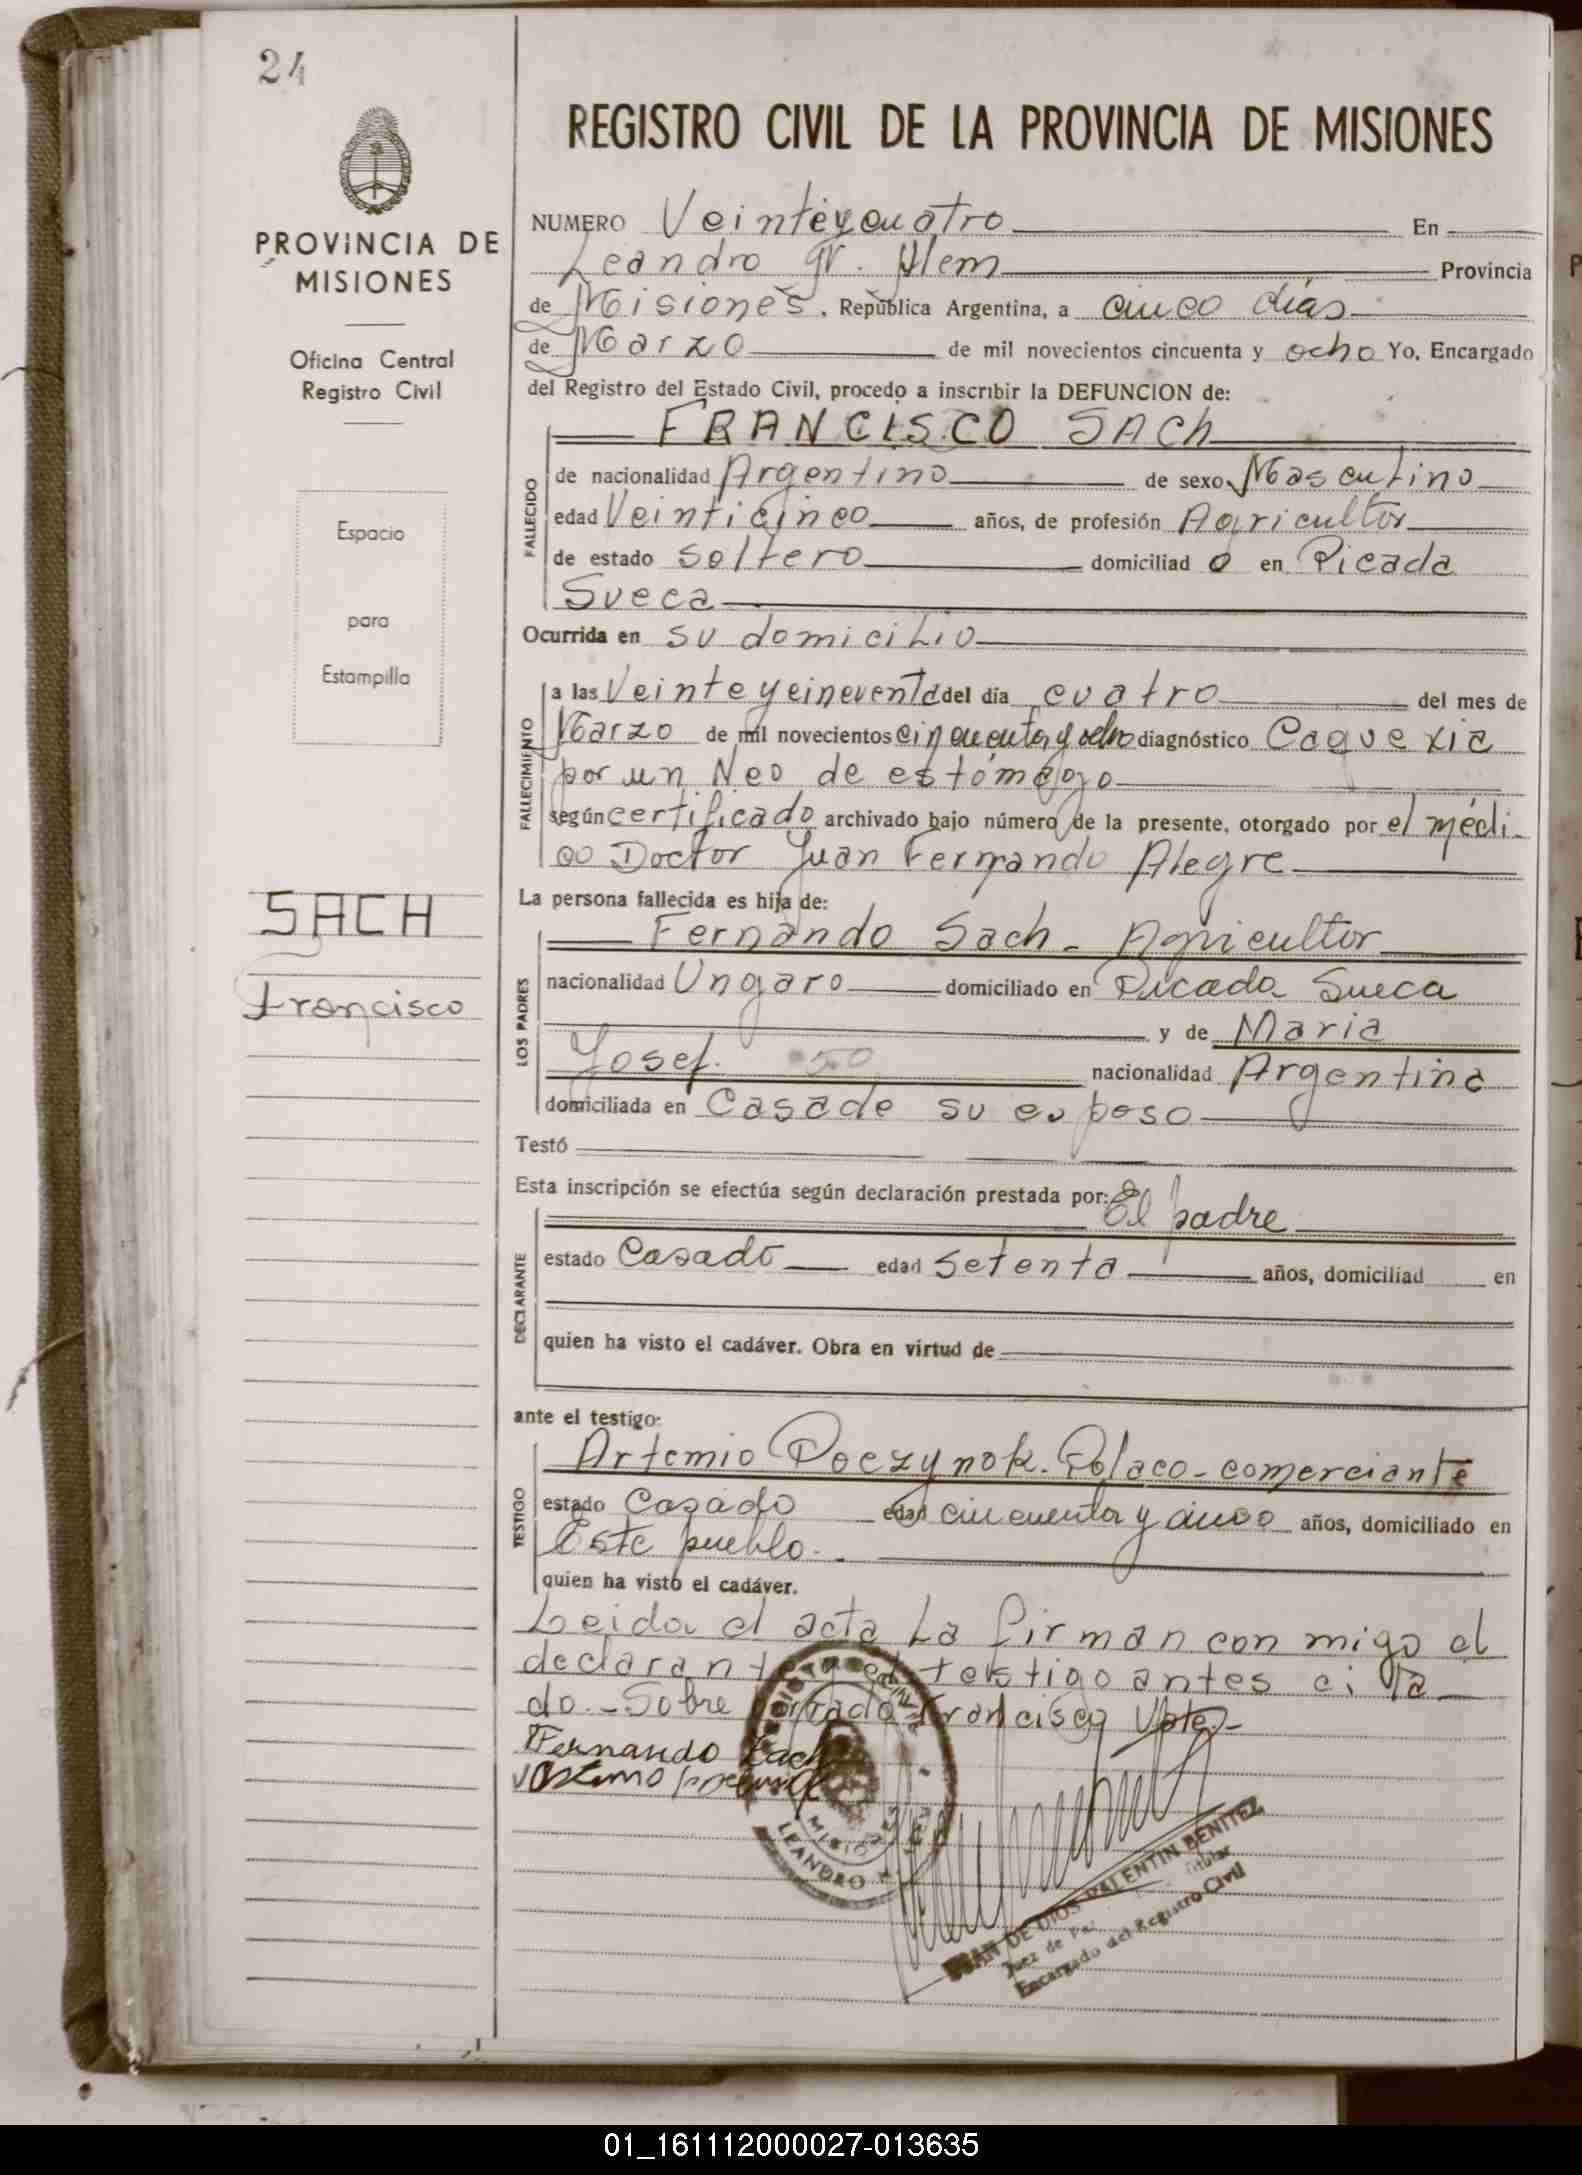 24
REGISTRO CIVIL DE LA PROVINCIA DE MISIONES
PROVINCIA DE
MISIONES
Oficina Central
Registro Civil
Espacio
para
Estampilla
SACH
Francisco
NUMERO Veinteycuatro En
Leandro N. Alem Provincia
de Misiones, República Argentina, a cinco días
de Marzo de mil novecientos cincuenta y ocho Yo, Encargado
del Registro del Estado Civil, procedo a inscribir la DEFUNCION de:
FRANCISCO SACh
FALLECIDO
de nacionalidad Argentino de sexo Masculino
edad Veinticinco años, de profesión Agricultor
de estado Soltero domiciliado en Picada
Sueca
Ocurrida en su domicilio
FALLECIMIENTO
a las Veinte y del día cuatro del mes de
Marzo de mil novecientos cincuenta y ocho diagnóstico Caquexia
por un Neo de estómago
según certificado archivado bajo número de la presente, otorgado por el médi-
co Doctor Juan Fernando Alegre
La persona fallecida es hija de:
LOS PADRES
Fernando Sach - Agricultor
nacionalidad Ungaro domiciliado en Picada Sueca
y de Maria
Josef. 50 nacionalidad Argentina
domiciliada en Casa de su esposo
Testó
Esta inscripción se efectúa según declaración prestada por: El padre
DECLARANTE
estado Casado edad Setenta años, domiciliad en
quien ha visto el cadáver. Obra en virtud de
ante el testigo:
TESTIGO
Artemio Poczynok. Polaco - comerciante
estado Casado edad cincuenta y cinco años, domiciliado en
Este pueblo.
quien ha visto el cadáver.
Leida el acta La firman conmigo el
declarante y el testigo antes cita
do. - Sobre borrado Francisco Vale -
Fernando Sach
MISIONES
LEANDRO N.
JUAN DE DIOS VALENTIN BENITEZ
Juez de Paz Titular
Encargado del Registro Civil
01_161112000027-013635